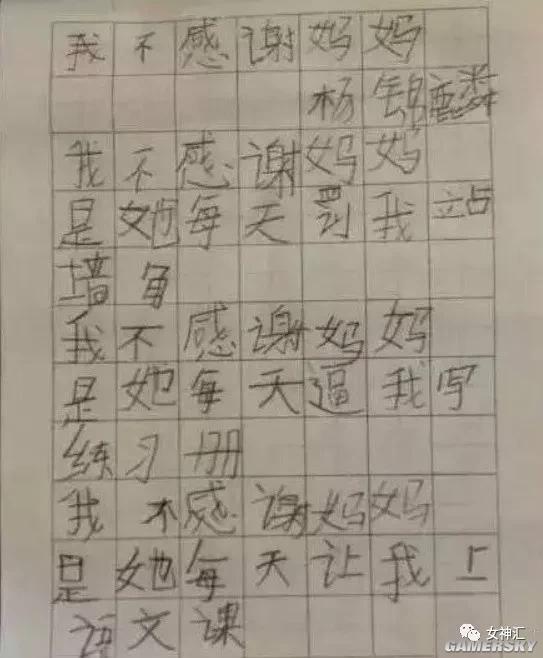 我不感谢妈妈
杨锦麟
我不感谢妈妈
是她每天罚我站
墙角
我不感谢妈妈
是她每天逼我写
练习册
我不感谢妈妈
是她每天让我上
语文课
女神汇
GAMERSKY